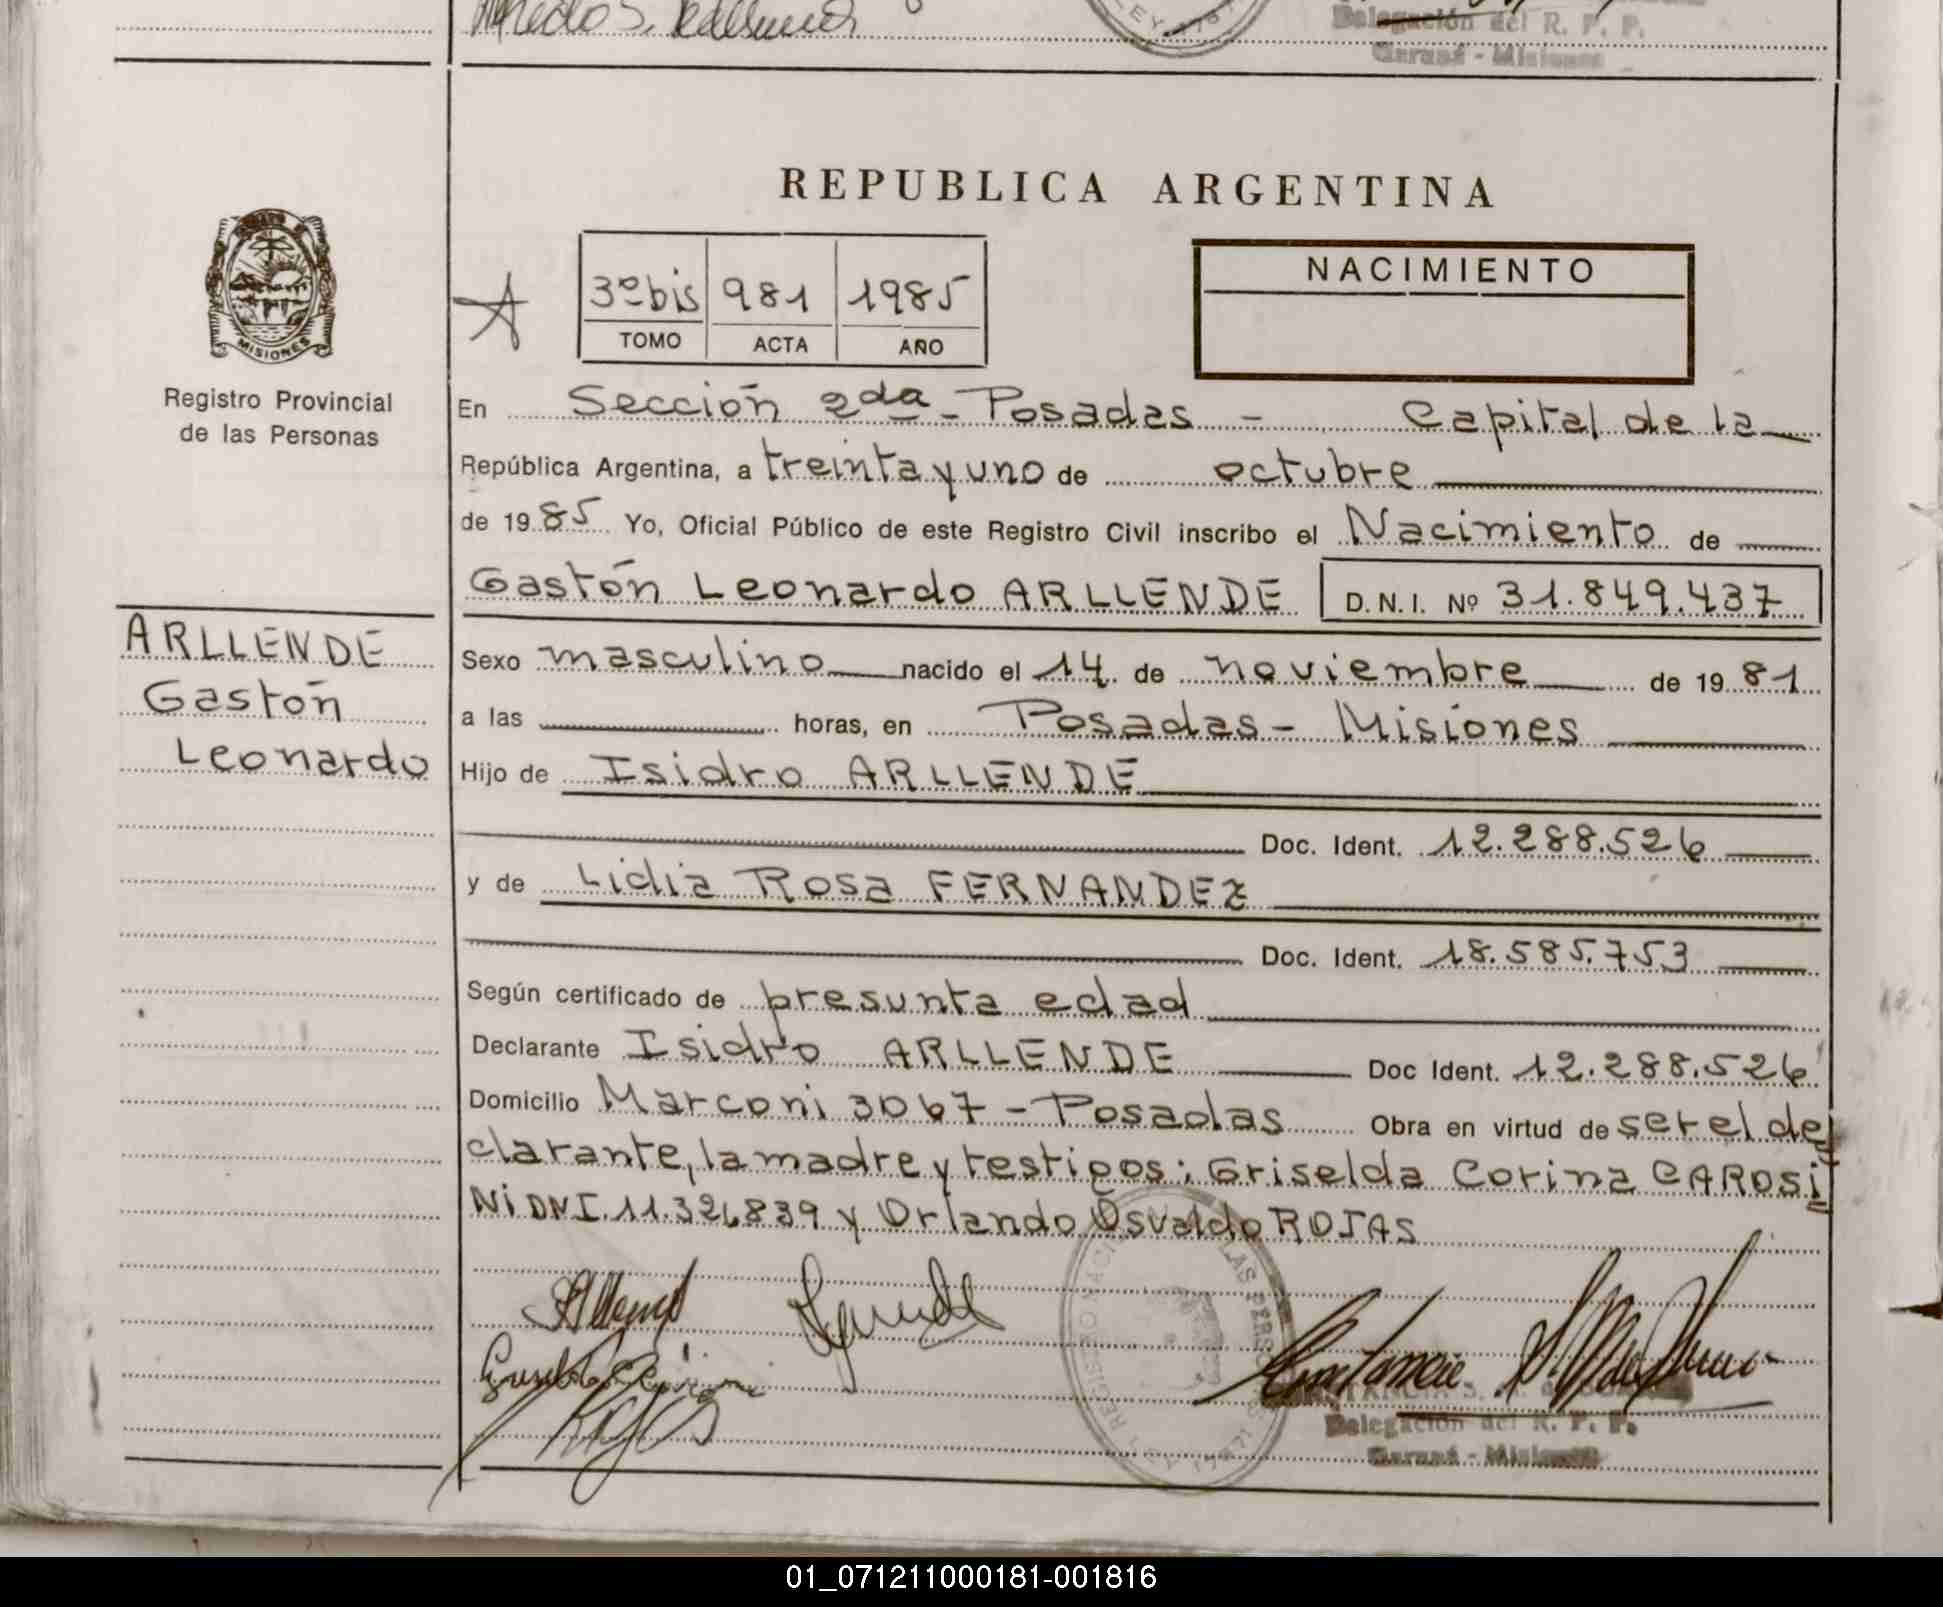 Delegación del R. P. P.
Garupá - Misiones
REPUBLICA ARGENTINA
MISIONES
Registro Provincial
de las Personas
3º bis 981 1985
TOMO ACTA AÑO
NACIMIENTO
En Sección 2da - Posadas - Capital de la
República Argentina, a treinta y uno de octubre
de 1985 Yo, Oficial Público de este Registro Civil inscribo el Nacimiento de
Gastón Leonardo ARLLENDE D.N.I. Nº 31.849.437
ARLLENDE
Gastón
Leonardo
Sexo masculino nacido el 14 de noviembre de 1981
a las horas, en Posadas - Misiones
Hijo de Isidro ARLLENDE
Doc. Ident. 12.288.526
y de Lidia Rosa FERNANDEZ
Doc. Ident. 18.585.753
Según certificado de presunta edad
Declarante Isidro ARLLENDE Doc Ident. 12.288.526
Domicilio Marconi 3067 - Posadas Obra en virtud de ser el de
clarante, la madre y testigos: Griselda Corina CAROSI
NI DNI. 11.326839 y Orlando Osvaldo ROJAS
Delegación del R. P. P.
Garupá - Misiones
01_071211000181-001816